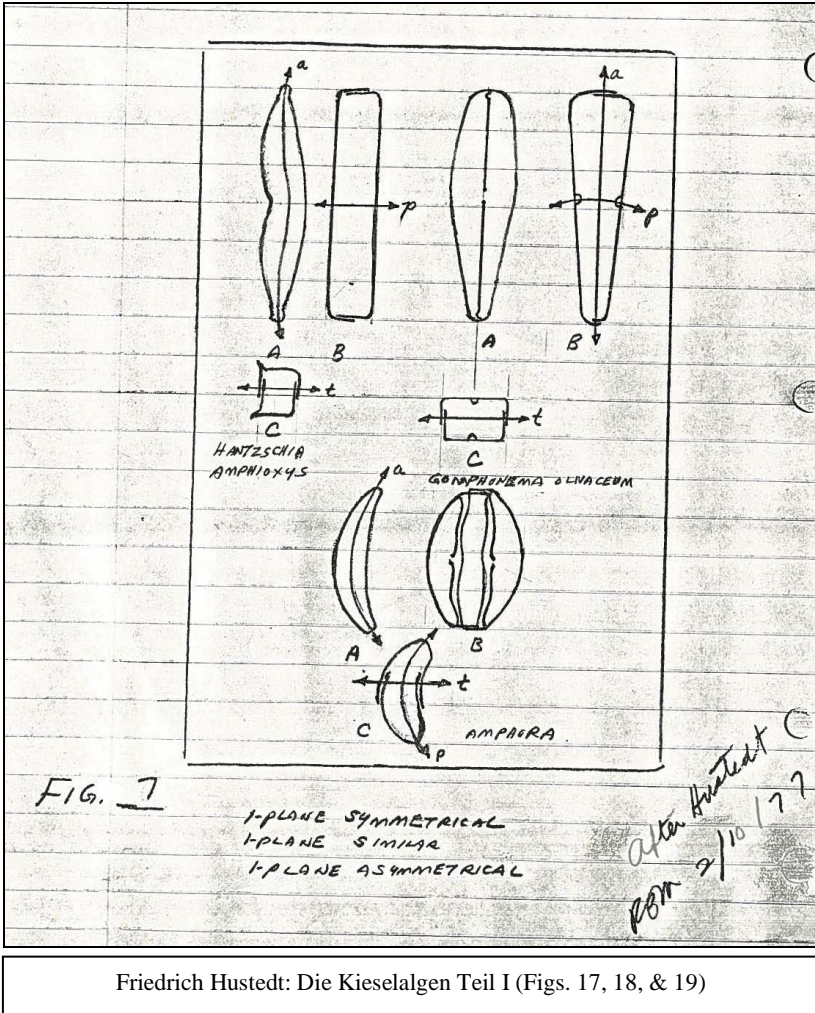 a
a
p
p
A
B
A
B
t
t
C
C
HANTZSCHIA
AMPHIOXYS
GOMPHONEMA OLIVACEUM
a
A
B
t
C
AMPHORA
p
FIG. 7
1-PLANE SYMMETRICAL
1-PLANE SIMILAR
1-PLANE ASYMMETRICAL
After Hustedt
2/10/77
Friedrich Hustedt: Die Kieselalgen Teil I (Figs. 17, 18, & 19)